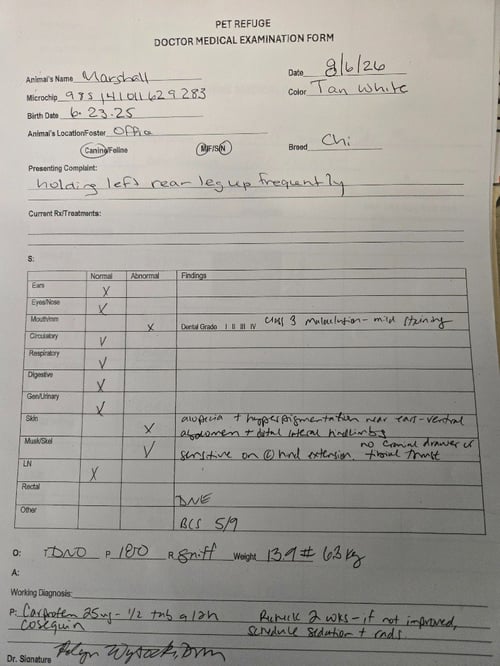 PET REFUGE
DOCTOR MEDICAL EXAMINATION FORM
Animal's Name Marshall
Date 2/6/26
Microchip 985141011629283
Color Tan White
Birth Date 6.23.25
Animal's Location/Foster Office
Canine/Feline M/F/S/N Breed Chi
Presenting Complaint:
holding left rear leg up frequently
Current Rx/Treatments:
S:
Normal Abnormal Findings
Ears X
Eyes/Nose X
Mouth/mm X Dental Grade I II III IV Class 3 malocclusion - mild staining
Circulatory √
Respiratory √
Digestive X
Gen/Urinary X
Skin X alopecia + hyperpigmentation near ears - ventral
abdomen + distal lateral hindlimbs
Musk/Skel √ sensitive on (L) hind extension, no cranial drawer or
tibial thrust
LN X
Rectal DNE
Other BCS 5/9
O: T DNO P 180 R Sniff Weight 13.9# 6.3kg
A:
Working Diagnosis:
P: Carprofen 25mg - 1/2 tab q12h Recheck 2 wks - if not improved,
cosequin schedule sedation + rads
Dr. Signature